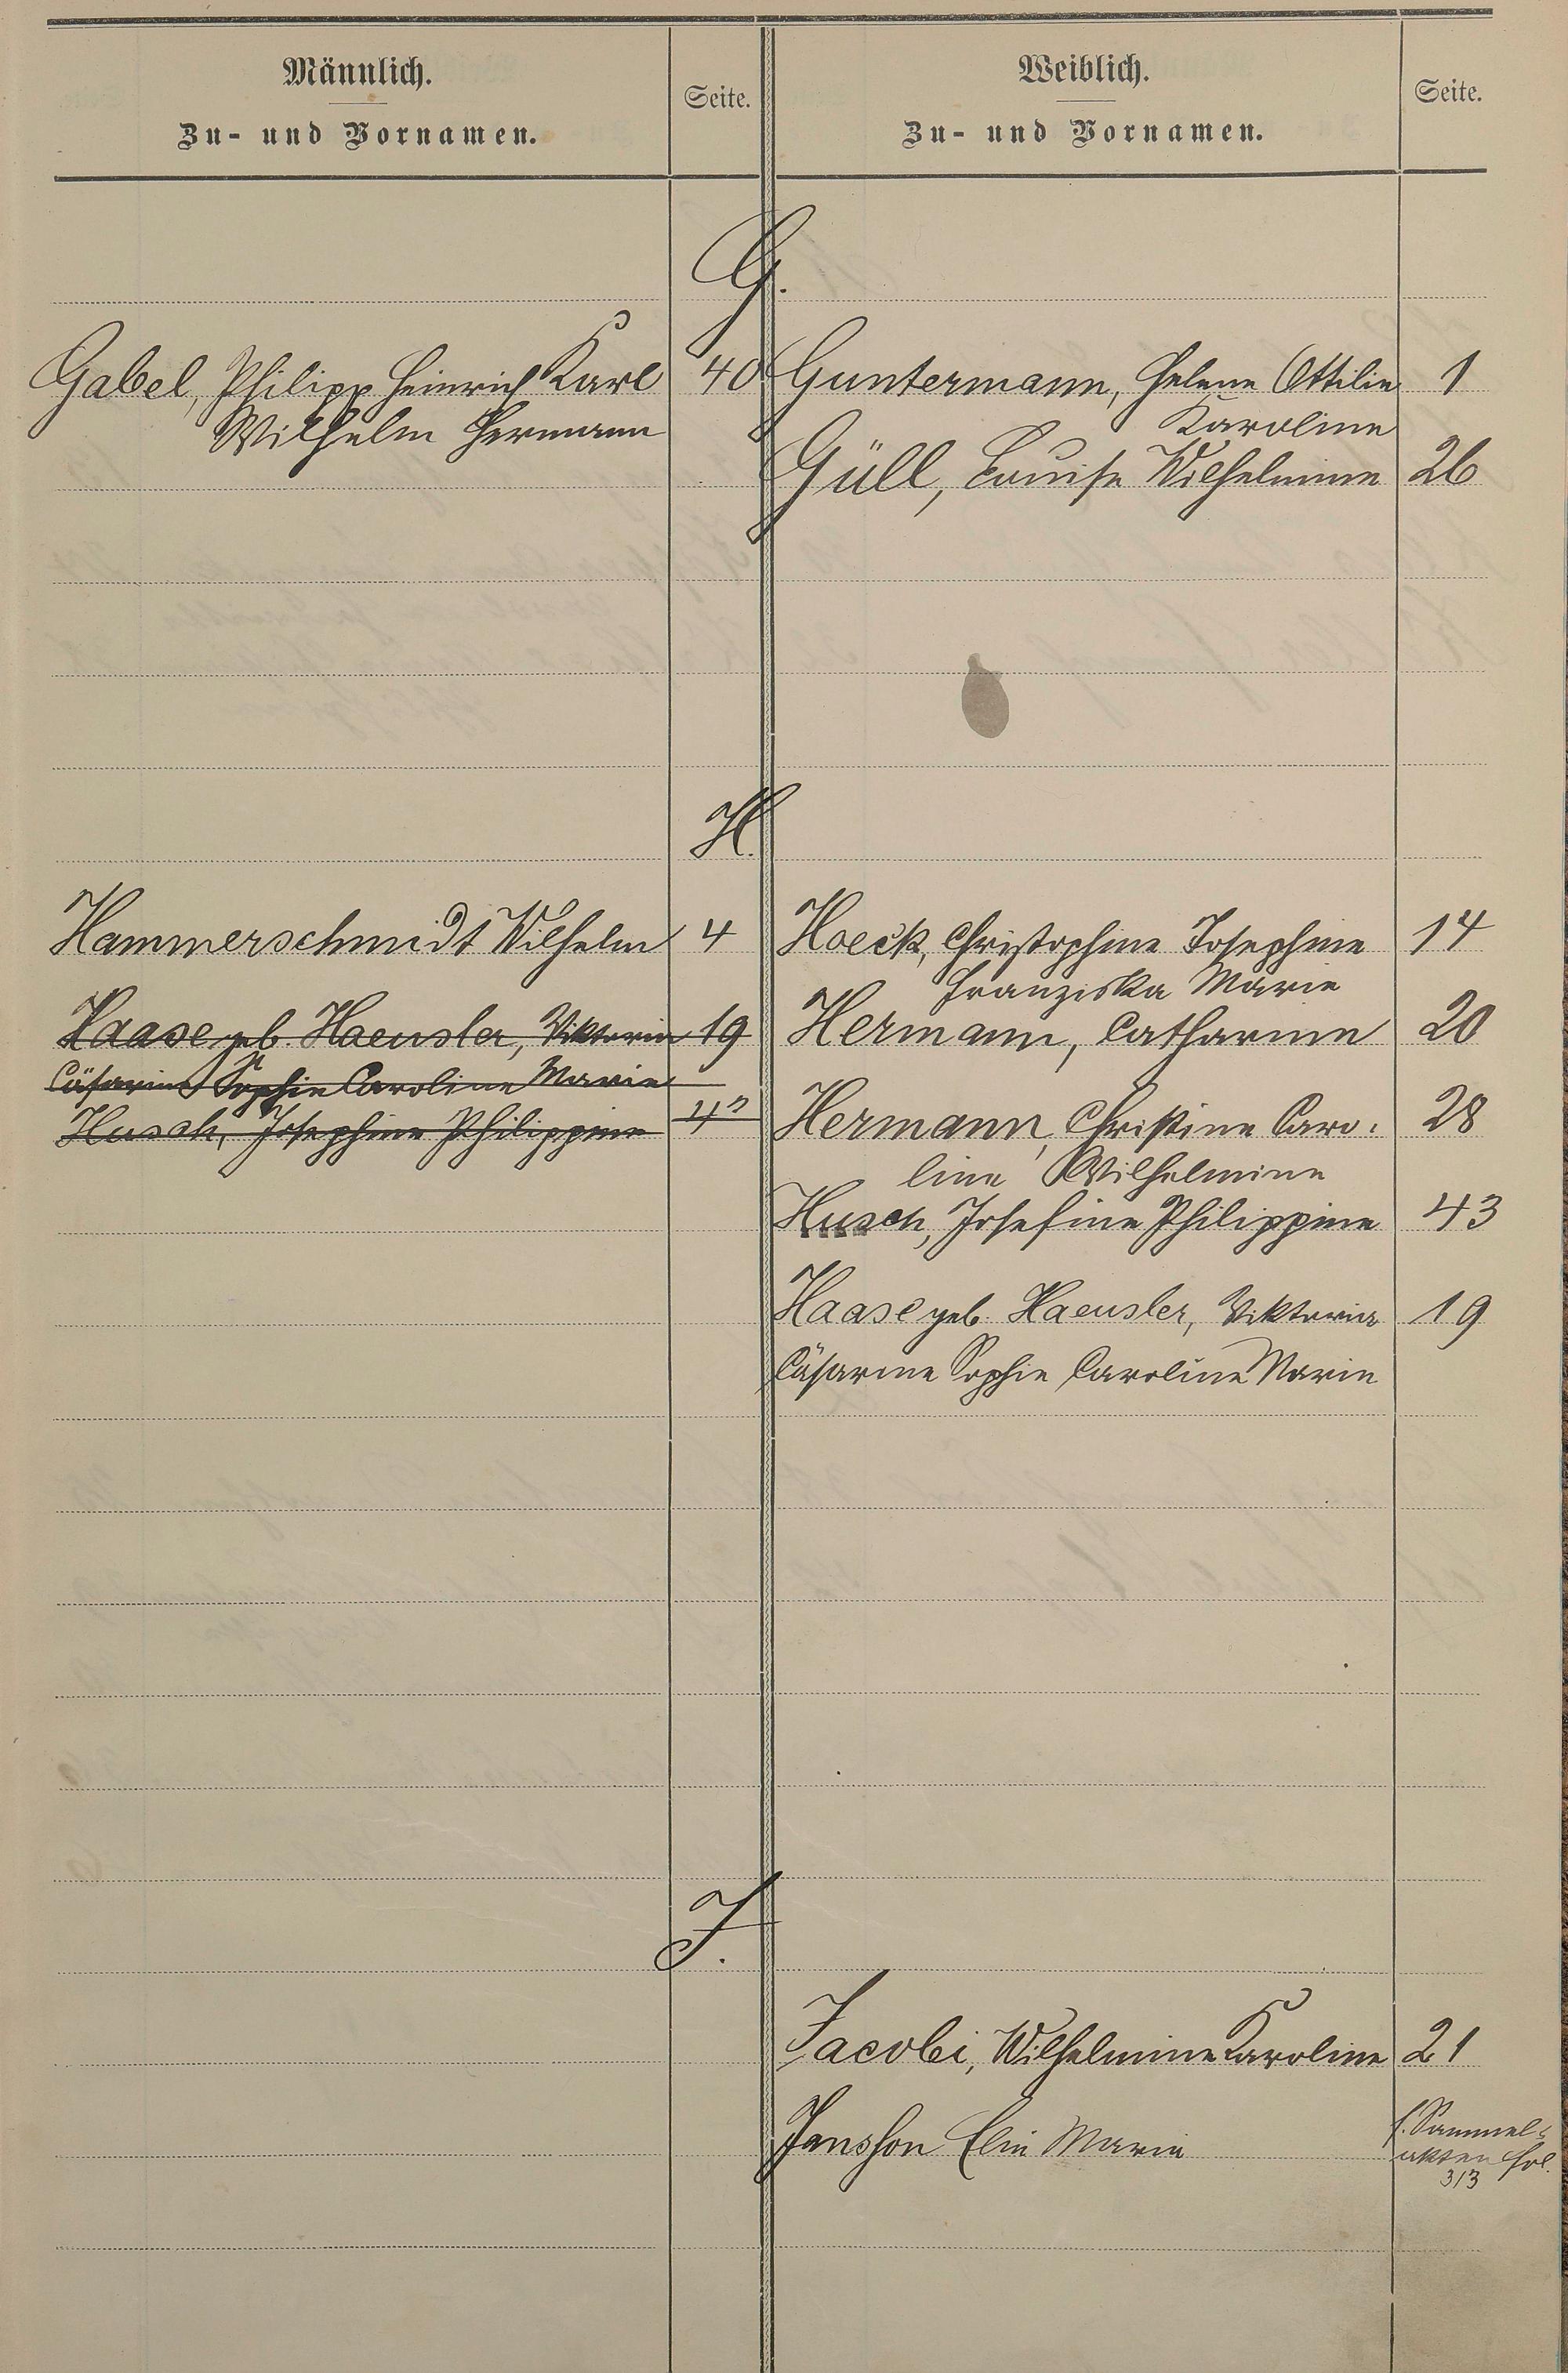 Männlich.
Zu- und Vornamen.
Seite.
Weiblich.
Zu- und Vornamen.
Seite.
G.
Gabel, Philipp Heinrich Karl 40
Wilhelm Hermann
Guntermann, Helene Ottilie 1
Karoline
Güll, Louise Wilhelmine 26
H.
Hammerschmidt Wilhelm 4
Haase geb. Haeusler, Viktoria 19
Cäsarine Sophie Caroline Marie
Husch, Josephine Philippine 43
Hoeck, Christophine Josephine 14
Franziska Marie
Hermann, Catharine 20
Hermann, Christine Caro-28
line Wilhelmine
Husch, Josefine Philippine 43
Haase geb. Haeusler, Viktoria 19
Cäsarine Sophie Caroline Marie
J.
Jacobi, Wilhelmine Karoline 21
Jansson Elin Maria
s. Sammel-
akten fol.
313